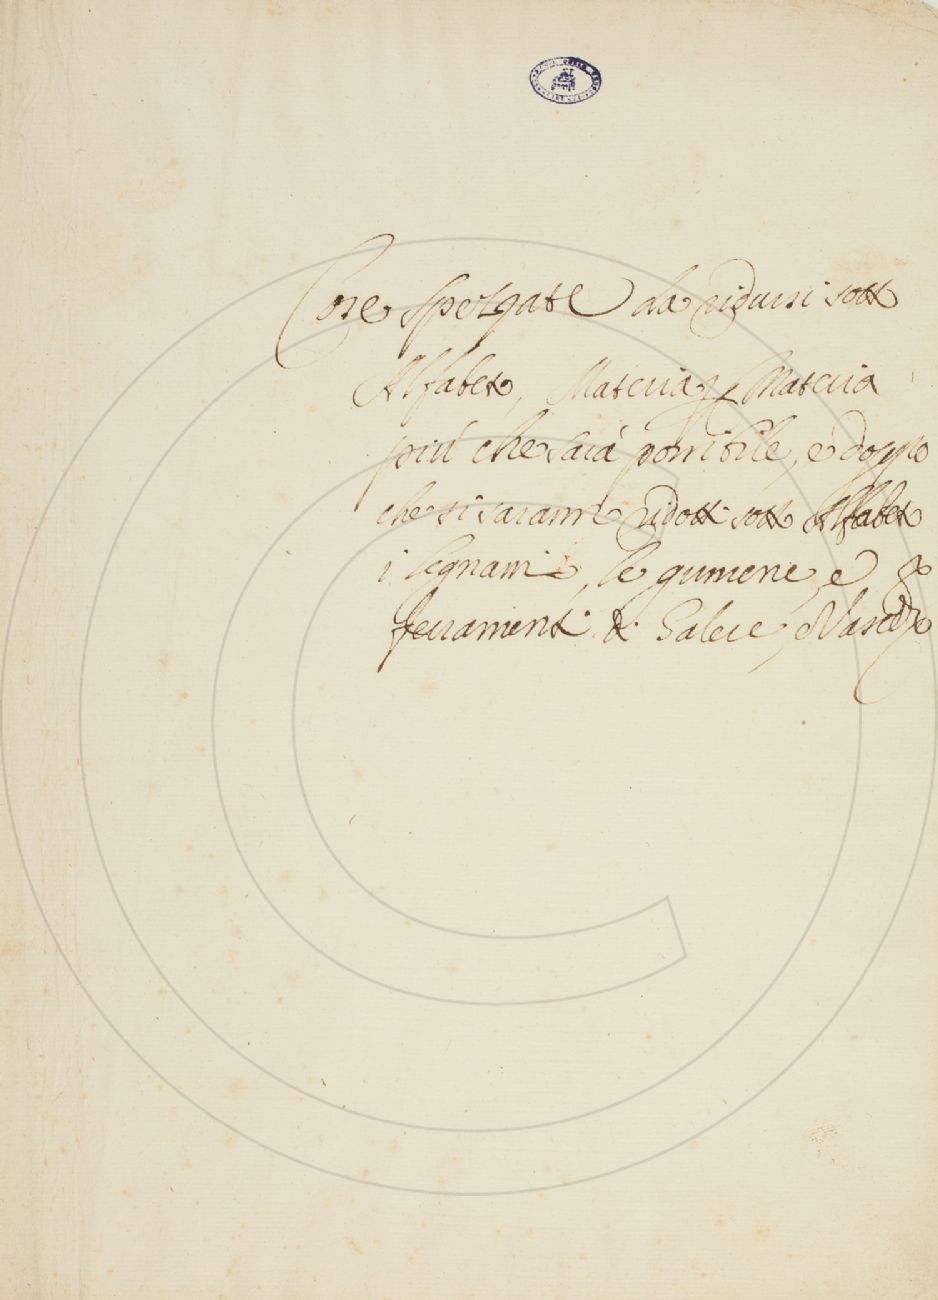 Cose spolgate da ridursi sotto
Alfabeto, Materia p Materia
più che sarà possibile, e doppo
che si saranno ridotti sotto Alfabeto
i legnami, le gumene, e
ferramenti di Galere, e Vascelli